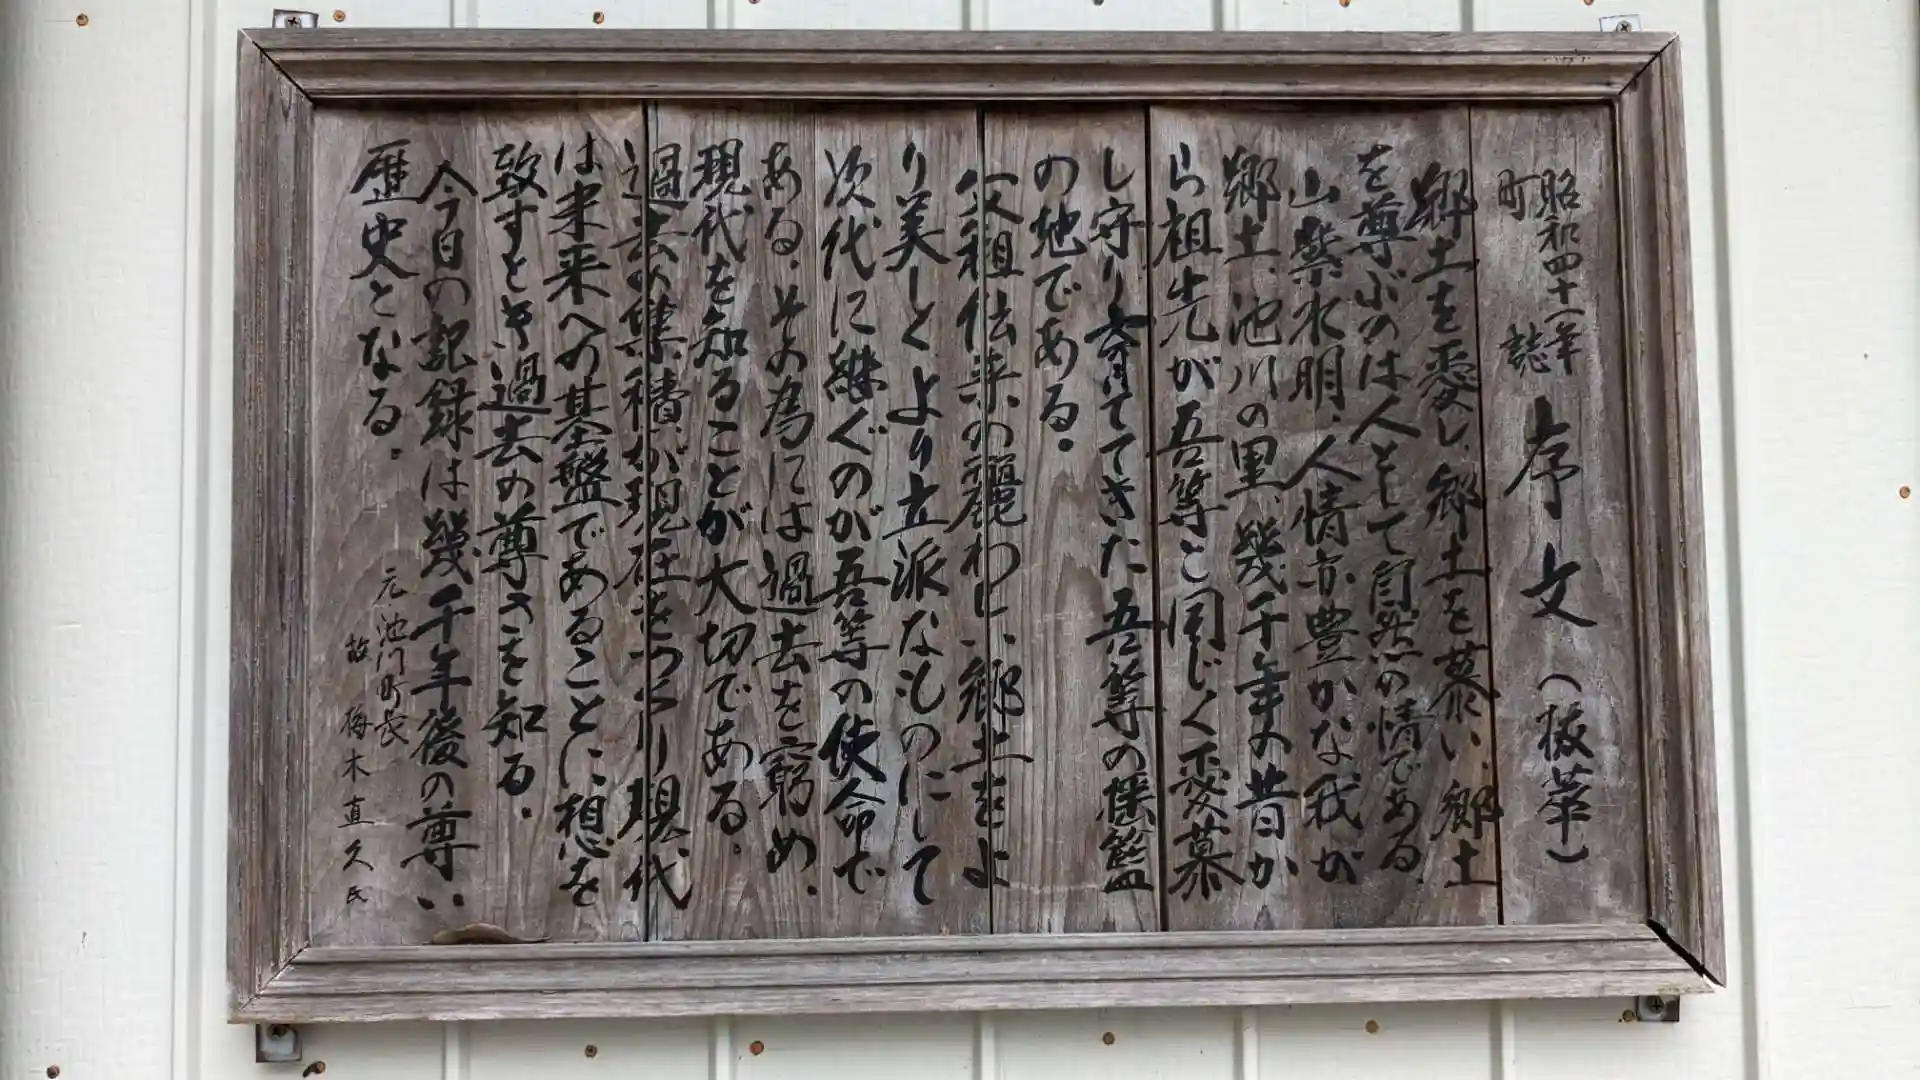 昭和四十一年
町誌 序文（抜萃）
郷土を愛し、郷土を慕い、郷土
を尊ぶのは人として自然の情である
山紫水明、人情亦豊かな我が
郷土、池川の里、幾千年の昔か
ら祖先が吾等と同じく愛慕
し守り育ててきた吾等の揺籃
の地である。
父祖伝来の麗わしい郷土をよ
り美しく、より立派なものにして
次代に継ぐのが吾等の使命で
ある。その為には過去を窮め、
現代を知ることが大切である。
過去の集積が現在をつくり現代
は未来への基盤であることに想を
致すとき過去の尊さを知る。
今日の記録は幾千年後の尊い
歴史となる。
元池川町長
故 梅木直久氏